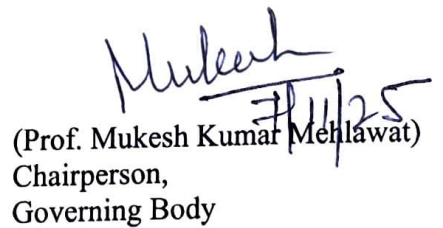 Mukesh
7/11/25
(Prof. Mukesh Kumar Mehlawat)
Chairperson,
Governing Body